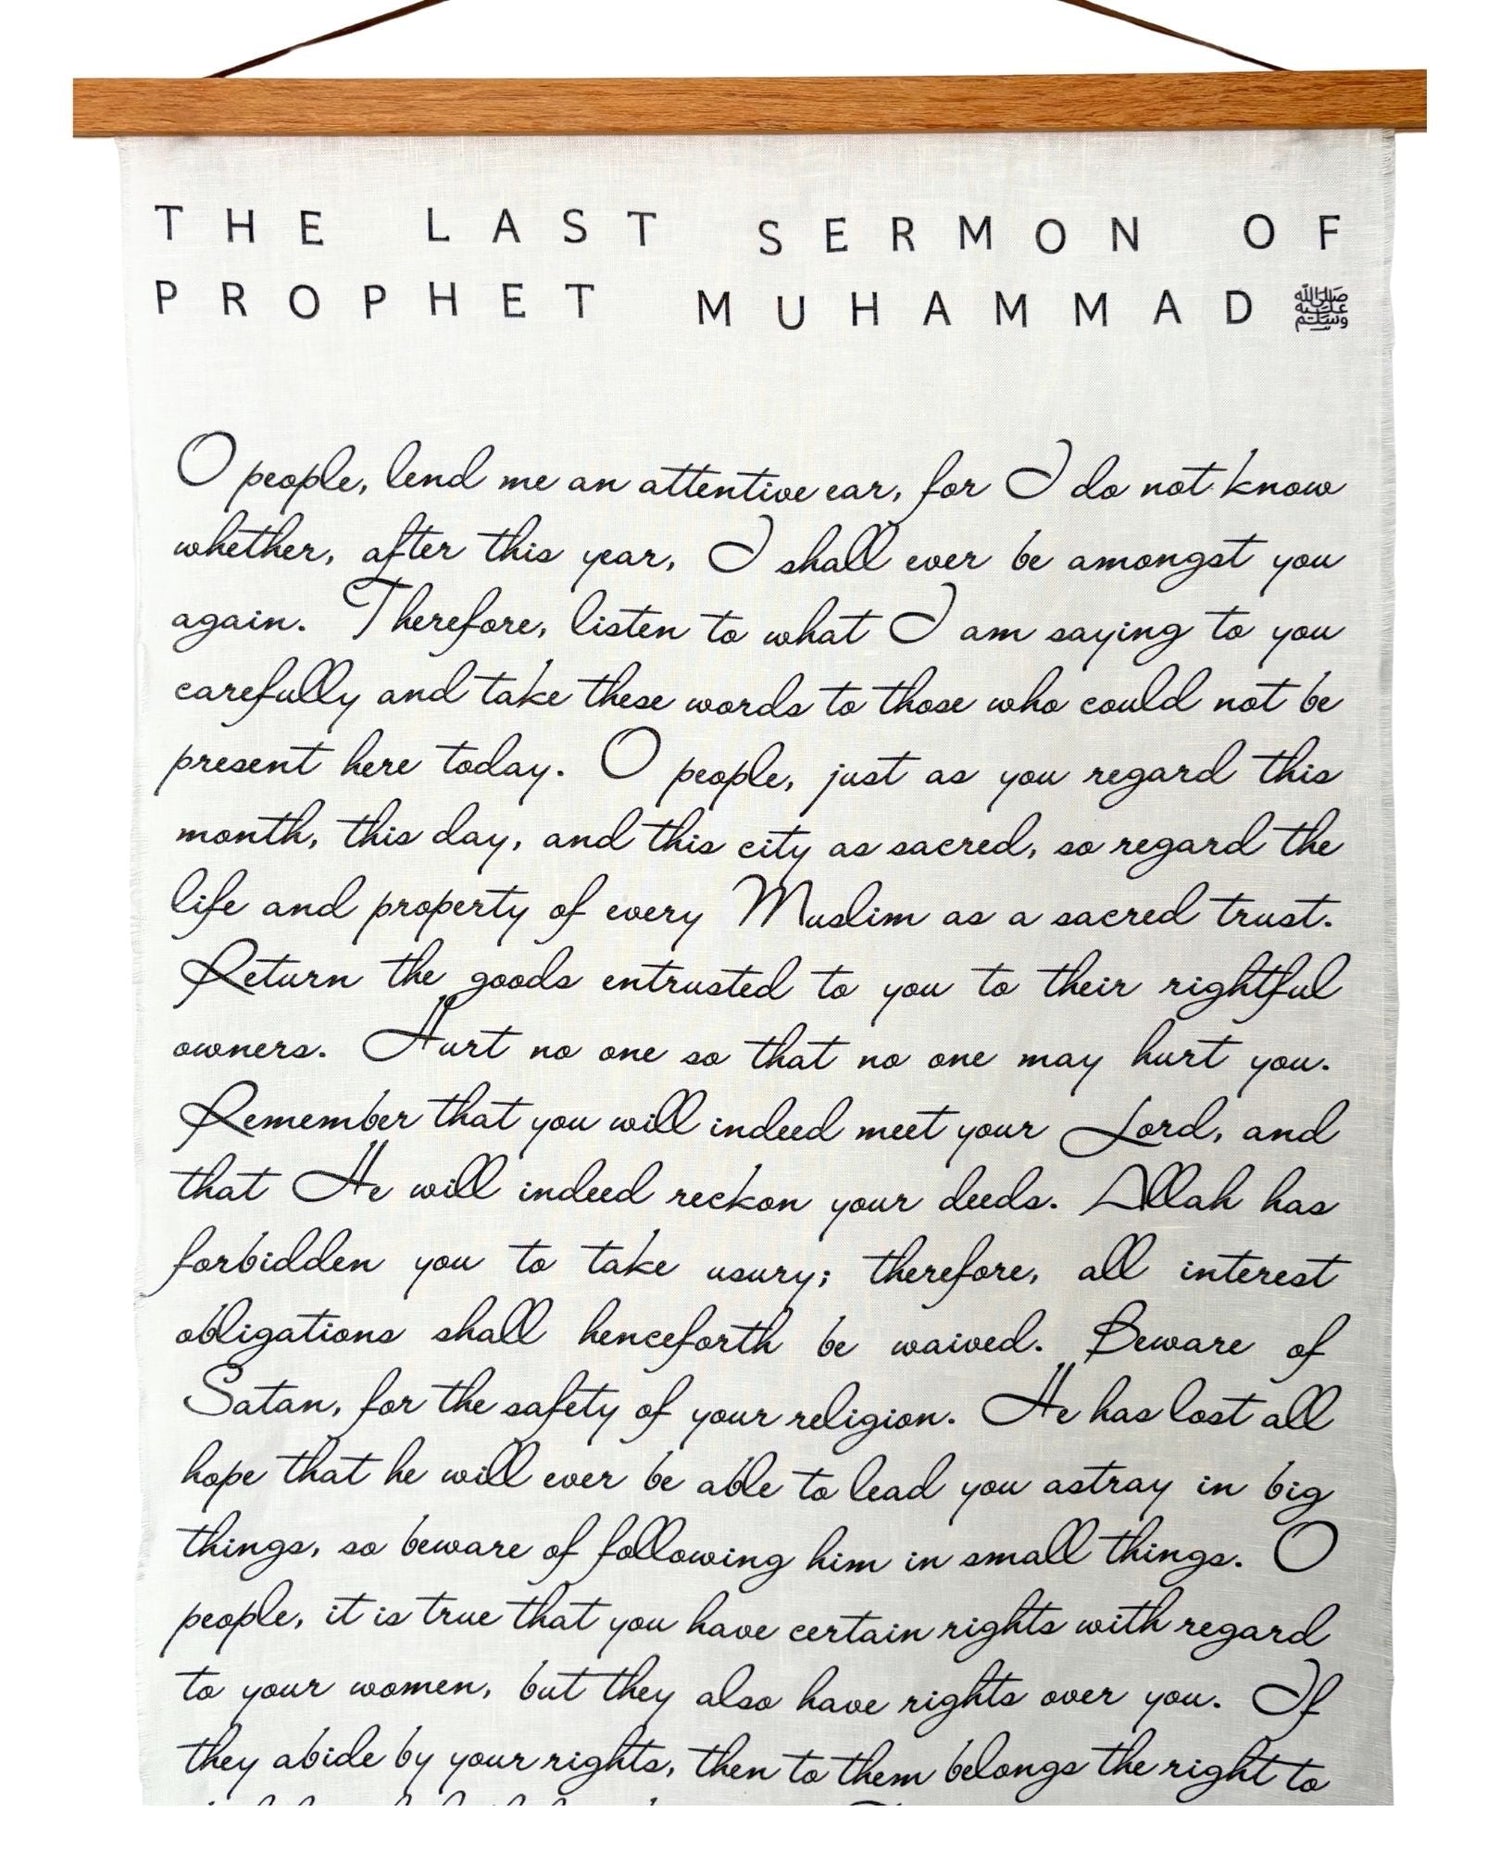 THE LAST SERMON OF
PROPHET MUHAMMAD ﷺ
O people, lend me an attentive ear, for I do not know
whether, after this year, I shall ever be amongst you
again. Therefore, listen to what I am saying to you
carefully and take these words to those who could not be
present here today. O people, just as you regard this
month, this day, and this city as sacred, so regard the
life and property of every Muslim as a sacred trust.
Return the goods entrusted to you to their rightful
owners. Hurt no one so that no one may hurt you.
Remember that you will indeed meet your Lord, and
that He will indeed reckon your deeds. Allah has
forbidden you to take usury; therefore, all interest
obligations shall henceforth be waived. Beware of
Satan, for the safety of your religion. He has lost all
hope that he will ever be able to lead you astray in big
things, so beware of following him in small things. O
people, it is true that you have certain rights with regard
to your women, but they also have rights over you. If
they abide by your rights, then to them belongs the right to